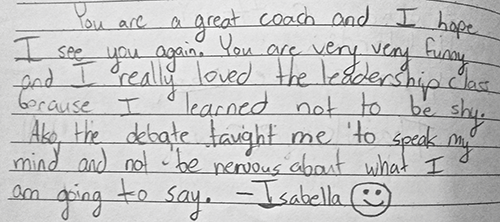 You are a great coach and I hope
I see you again. You are very very funny
and I really loved the leadership class
because I learned not to be shy.
Also the debate taught me to speak my
mind and not be nervous about what I
am going to say. - Isabella